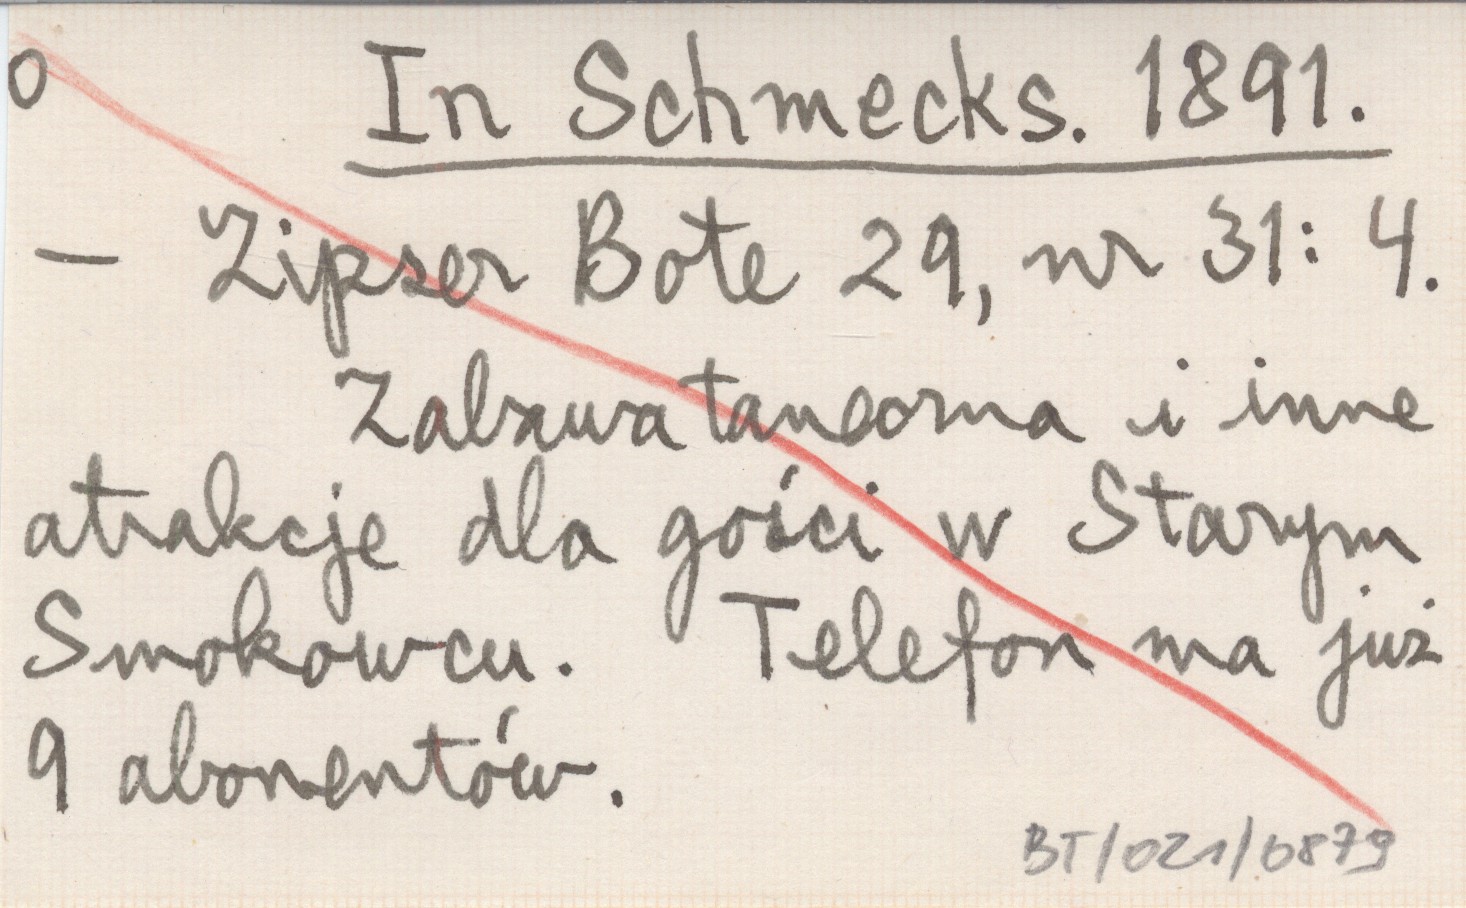 o In Schmecks. 1891.
— Zipser Bote 29, nr 31: 4.
Zabawa taneczna i inne
atrakcje dla gości w Starym
Smokowcu. Telefon ma już
9 abonentów.
BT/021/0879